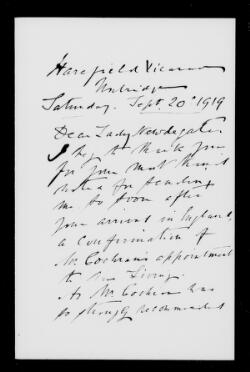 Harefield Vicarage
Uxbridge
Saturday. Sept. 20th 1919
Dear Lady Newdegate,
I beg to thank you
for your most kind
for sending
me so soon after
your arrival in England,
a confirmation of
Mr. Cochran's appointment
to the Living.
As Mr. Cochran has
so strongly recommended